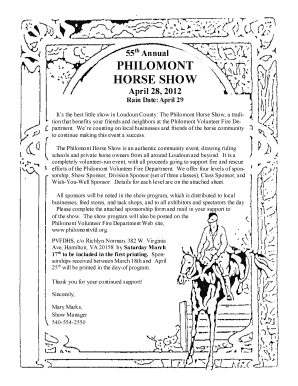 55th Annual
PHILOMONT
HORSE SHOW
April 28, 2012
Rain Date: April 29
It's the best little show in Loudoun County: The Philomont Horse Show, a tradi-
tion that benefits your friends and neighbors at the Philomont Volunteer Fire De-
partment. We're counting on local businesses and friends of the horse community
to continue making this event a success.
The Philomont Horse Show is an authentic community event, drawing riding
schools and private horse owners from all around Loudoun and beyond. It is a
completely volunteer-run event, with all proceeds going to support fire and rescue
efforts of the Philomont Volunteer Fire Department. We offer four levels of spon-
sorship, Show Sponsor, Division Sponsor (set of three classes), Class Sponsor, and
Wish-You-Well Sponsor. Details for each level are on the attached sheet.
All sponsors will be noted in the show program, which is distributed to local
businesses, feed stores, and tack shops, and to all exhibitors and spectators the day
Please complete the attached sponsorship form and mail in your support to
of the show. The show program will also be posted on the
Philomont Volunteer Fire Department Web site,
www.philomontvfd.org.
PVFDHS, c/o Richlyn Norman, 382 W. Virginia
Ave, Hamilton, VA 20158 by Saturday March
17th to be included in the first printing. Spon-
sorships received between March 18th and April
25th will be printed in the day-of program.
Thank you for your continued support!
Sincerely,
Mary Marks,
Show Manager
540-554-2550